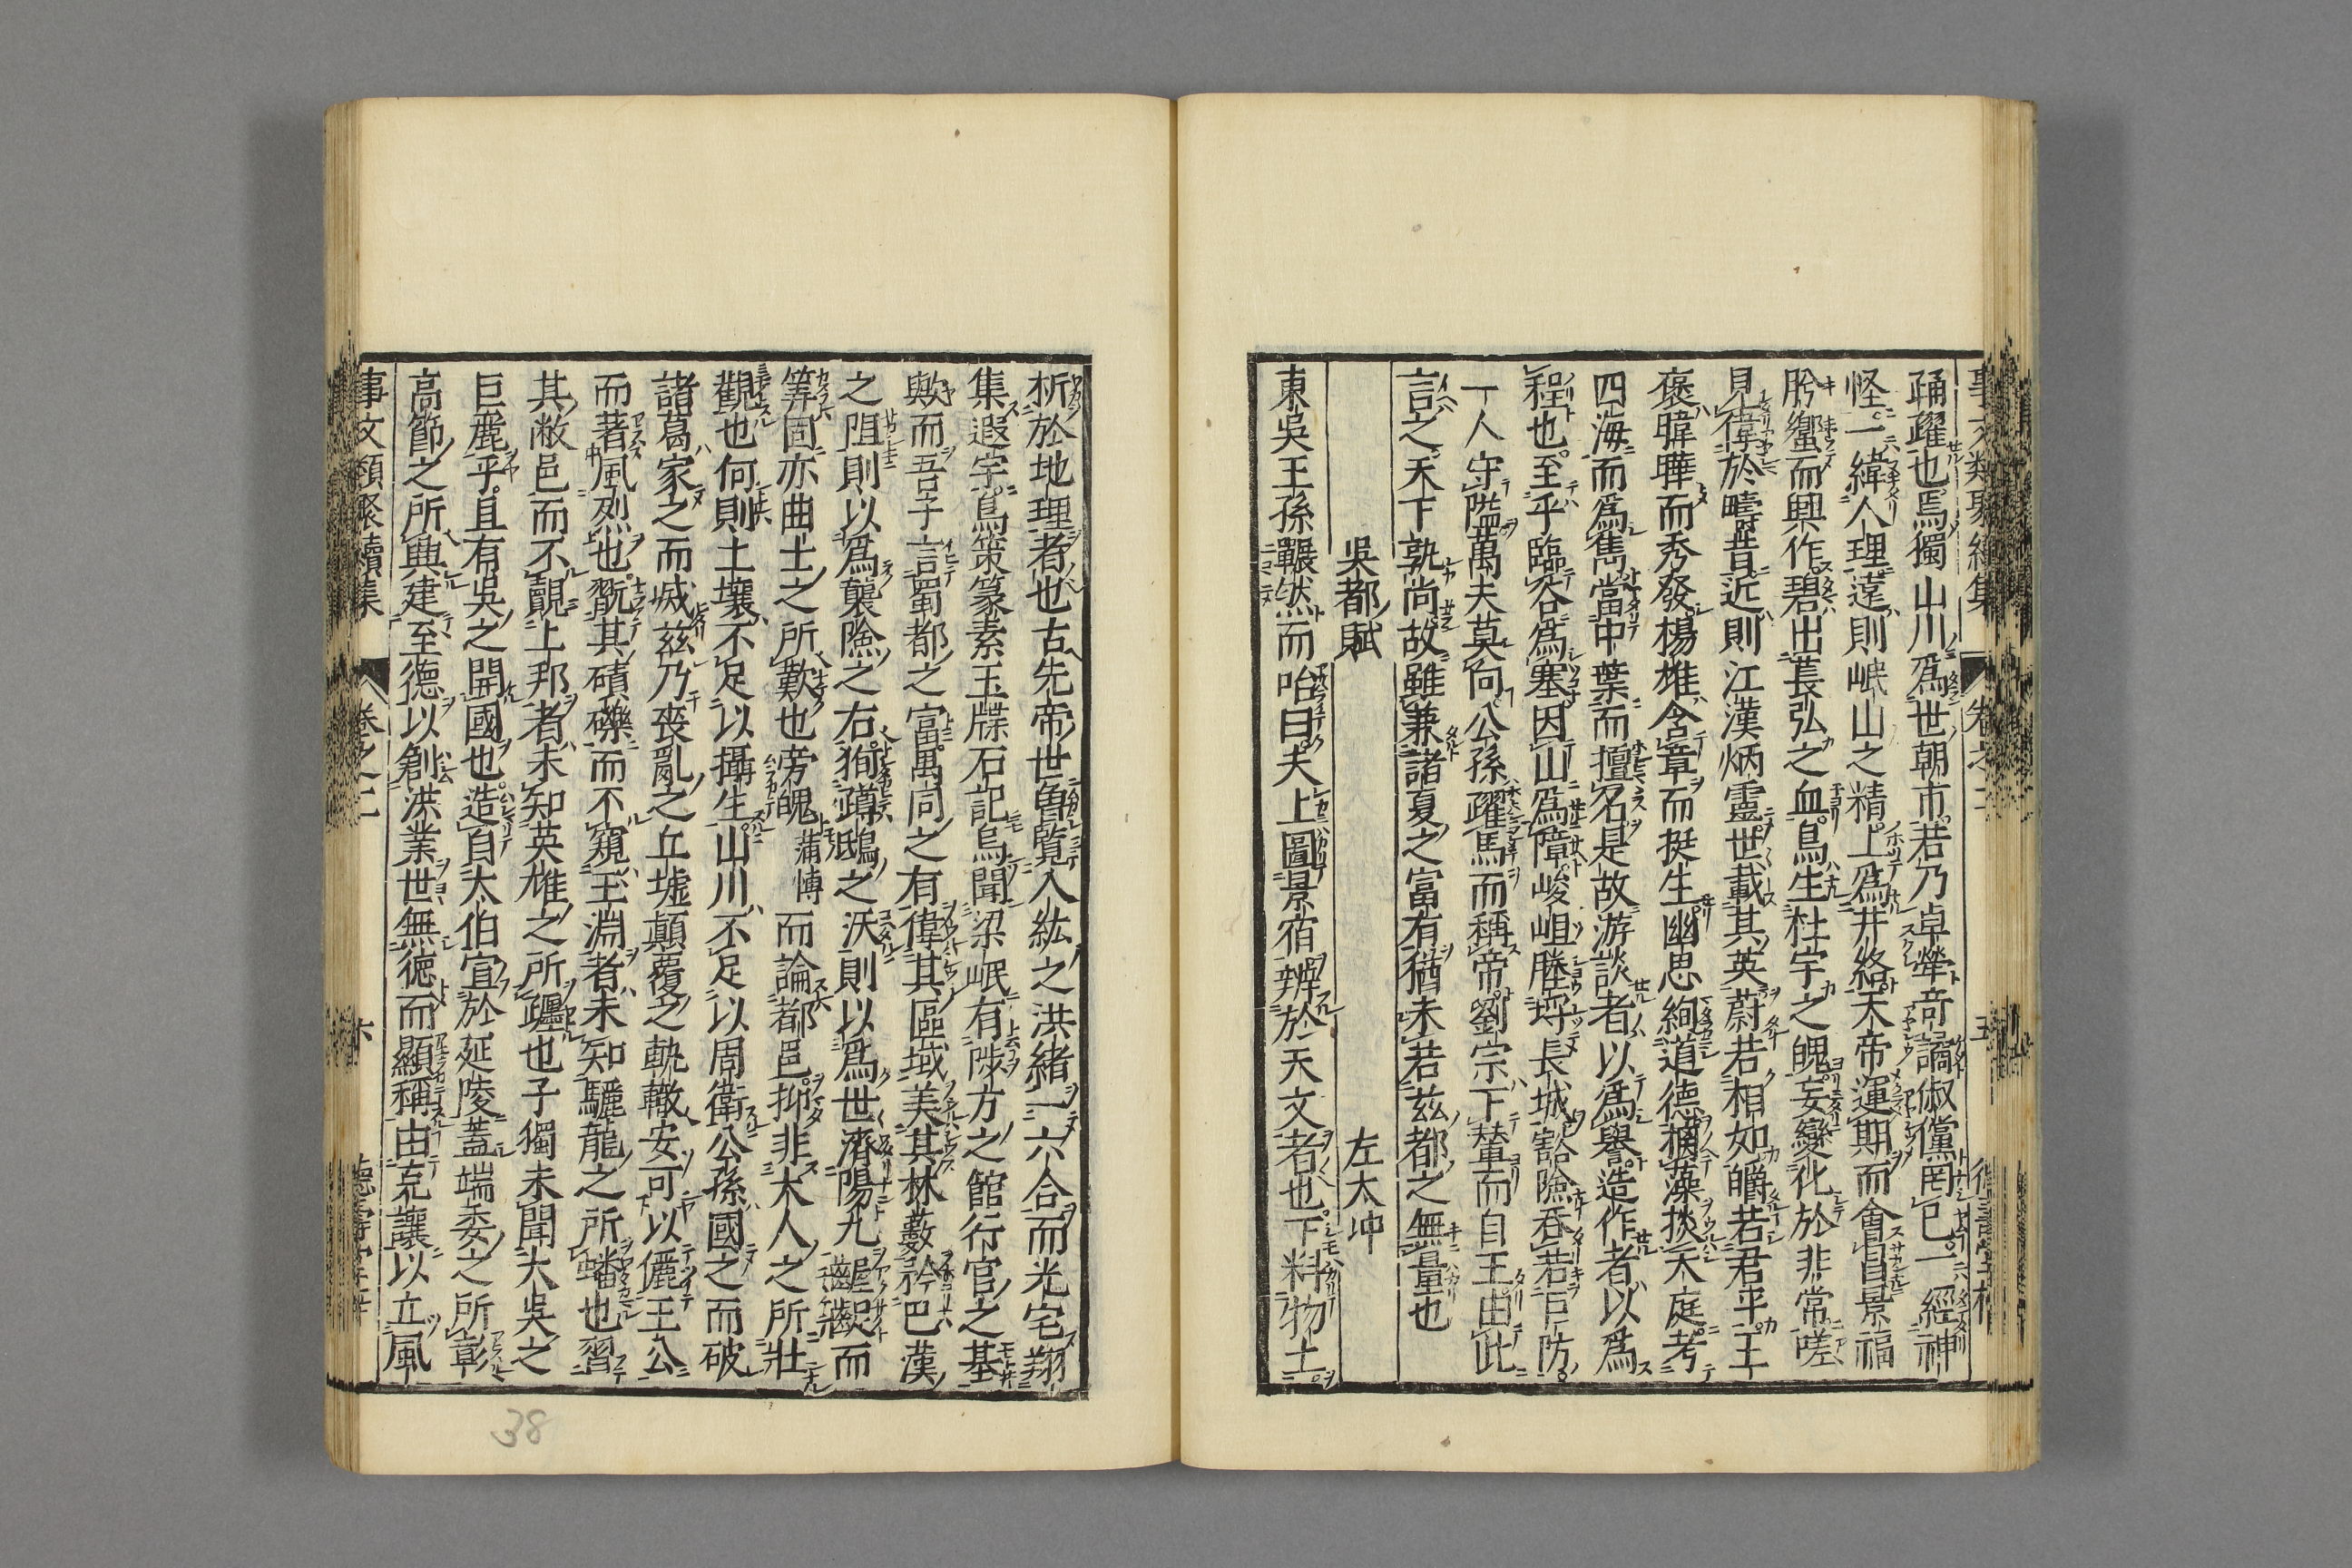 踊躍也焉獨山川爲世朝市若乃卓犖奇譎俶儻罔已一經神
怪一緯人理遠則岷山之精上爲井絡天帝運期而會昌景福
肹蠁而興作碧出萇弘之血鳥生杜宇之魄妄變化於非常嗟
見偉於疇昔近則江漢炳靈世載其英蔚若相如皭若君平王
褒暐曄而秀發楊雄含章而挺生幽思絢道德摛藻掞天庭考
四海而爲雋當中葉而擅名是故游談者以爲譽造作者以爲
程也至乎臨谷爲塞因山爲障峻岨塍埒長城豁險吞若巨防
一人守隘萬夫莫向公孫躍馬而稱帝劉宗下輦而自王由此
言之天下孰尚故雖兼諸夏之富有猶未若茲都之無量也
吳都賦 左太冲
東吳王孫囅然而咍曰夫上圖景宿辨於天文者也下料物土
析於地理者也古先帝世曾覽八紘之洪緒一六合而光宅翔
集遐宇鳥策篆素玉牒石記烏聞梁岷有陟方之館行宮之基
歟而吾子言蜀都之富禺同之有偉其區域美其林藪矜巴漢
之阻則以爲襲險之右徇蹲鴟之沃則以爲世濟陽九齷齪而
筭固亦曲士之所歎也旁魄而論都邑抑非大人之所壯
觀也何則土壤不足以攝生山川不足以周衛公孫國之而破
諸葛家之而滅茲乃喪亂之丘墟顛覆之軌轍安可以儷王公
而著風烈也翫其磧礫而不窺玉淵者未知驪龍之所蟠也習
其敝邑而不覿上邦者未知英雄之所躔也子獨未聞大吳之
巨麗乎且有吳之開國也造自太伯宣於延陵蓋端委之所彰
高節之所興建至德以創洪業世無德而顯稱由克讓以立風
事文類聚續集 卷之二 六